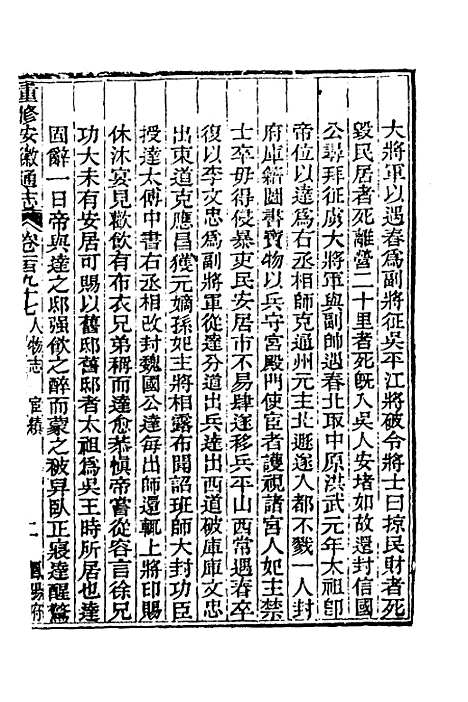 大將軍以遇春爲副將征吳平江將破令將士曰掠民財者死
毀民居者死離營二十里者死旣入吳人安堵如故還封信國
公尋拜征虜大將軍與副帥遇春北取中原洪武元年太祖卽
帝位以達爲右丞相師克通州元主北遯遂入都不戮一人封
府庫籍圖書寶物以兵守宮殿門使宦者護視諸宮人妃主禁
士卒毋得侵暴吏民安居市不易肆遂移兵平山西常遇春卒
復以李文忠爲副將軍從達分道出兵達出西道破庫庫文忠
出東道克應昌獲元嫡孫妃主將相露布聞詔班師大封功臣
授達太傅中書右丞相改封魏國公達每出師還輒上將印賜
休沐宴見歡飲有布衣兄弟稱而達愈恭愼帝嘗從容言徐兄
功大未有安居可賜以舊邸舊邸者太祖爲吳王時所居也達
固辭一日帝與達之邸强飲之醉而蒙之被舁臥正寢達醒驚
重修安徽通志 卷二百九十七 人物志 宦績 二 鳳陽府